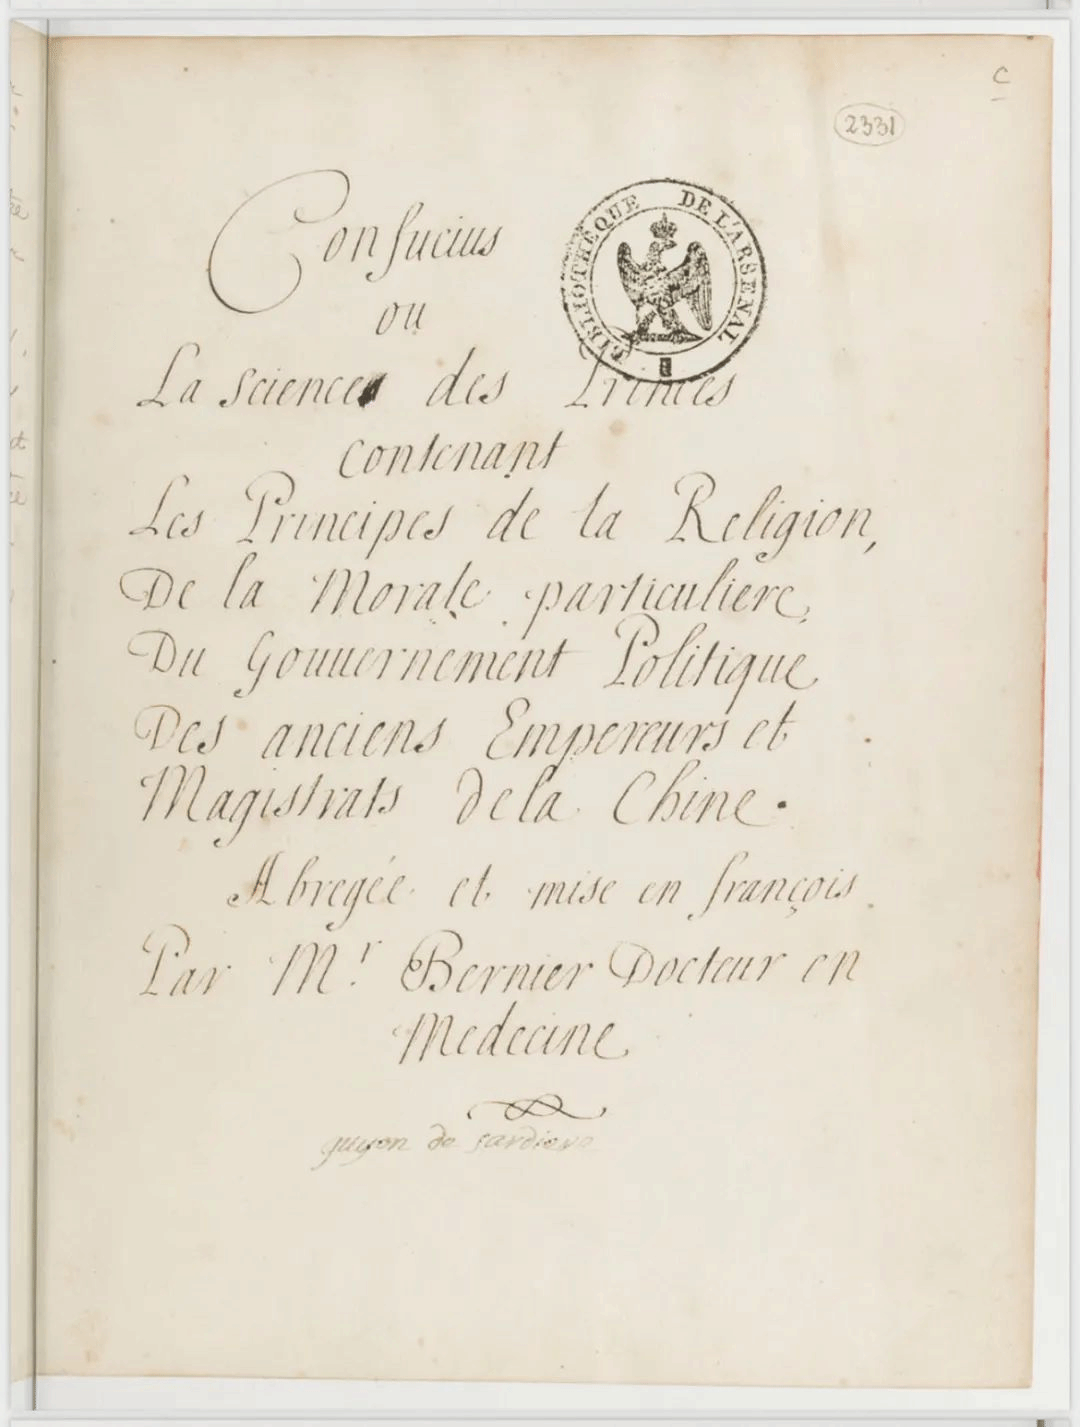 C
2331
Confucius
BIBLIOTHEQUE DE L'ARSENAL
ou
La science des Princes
contenant
Les Principes de la Religion,
De la Morale particuliere,
Du Gouuernement Politique
Des anciens Empereurs et
Magistrats de la Chine.
Abregée et mise en françois
Par Mr. Bernier Docteur en
Medecine
guyon de sardiere